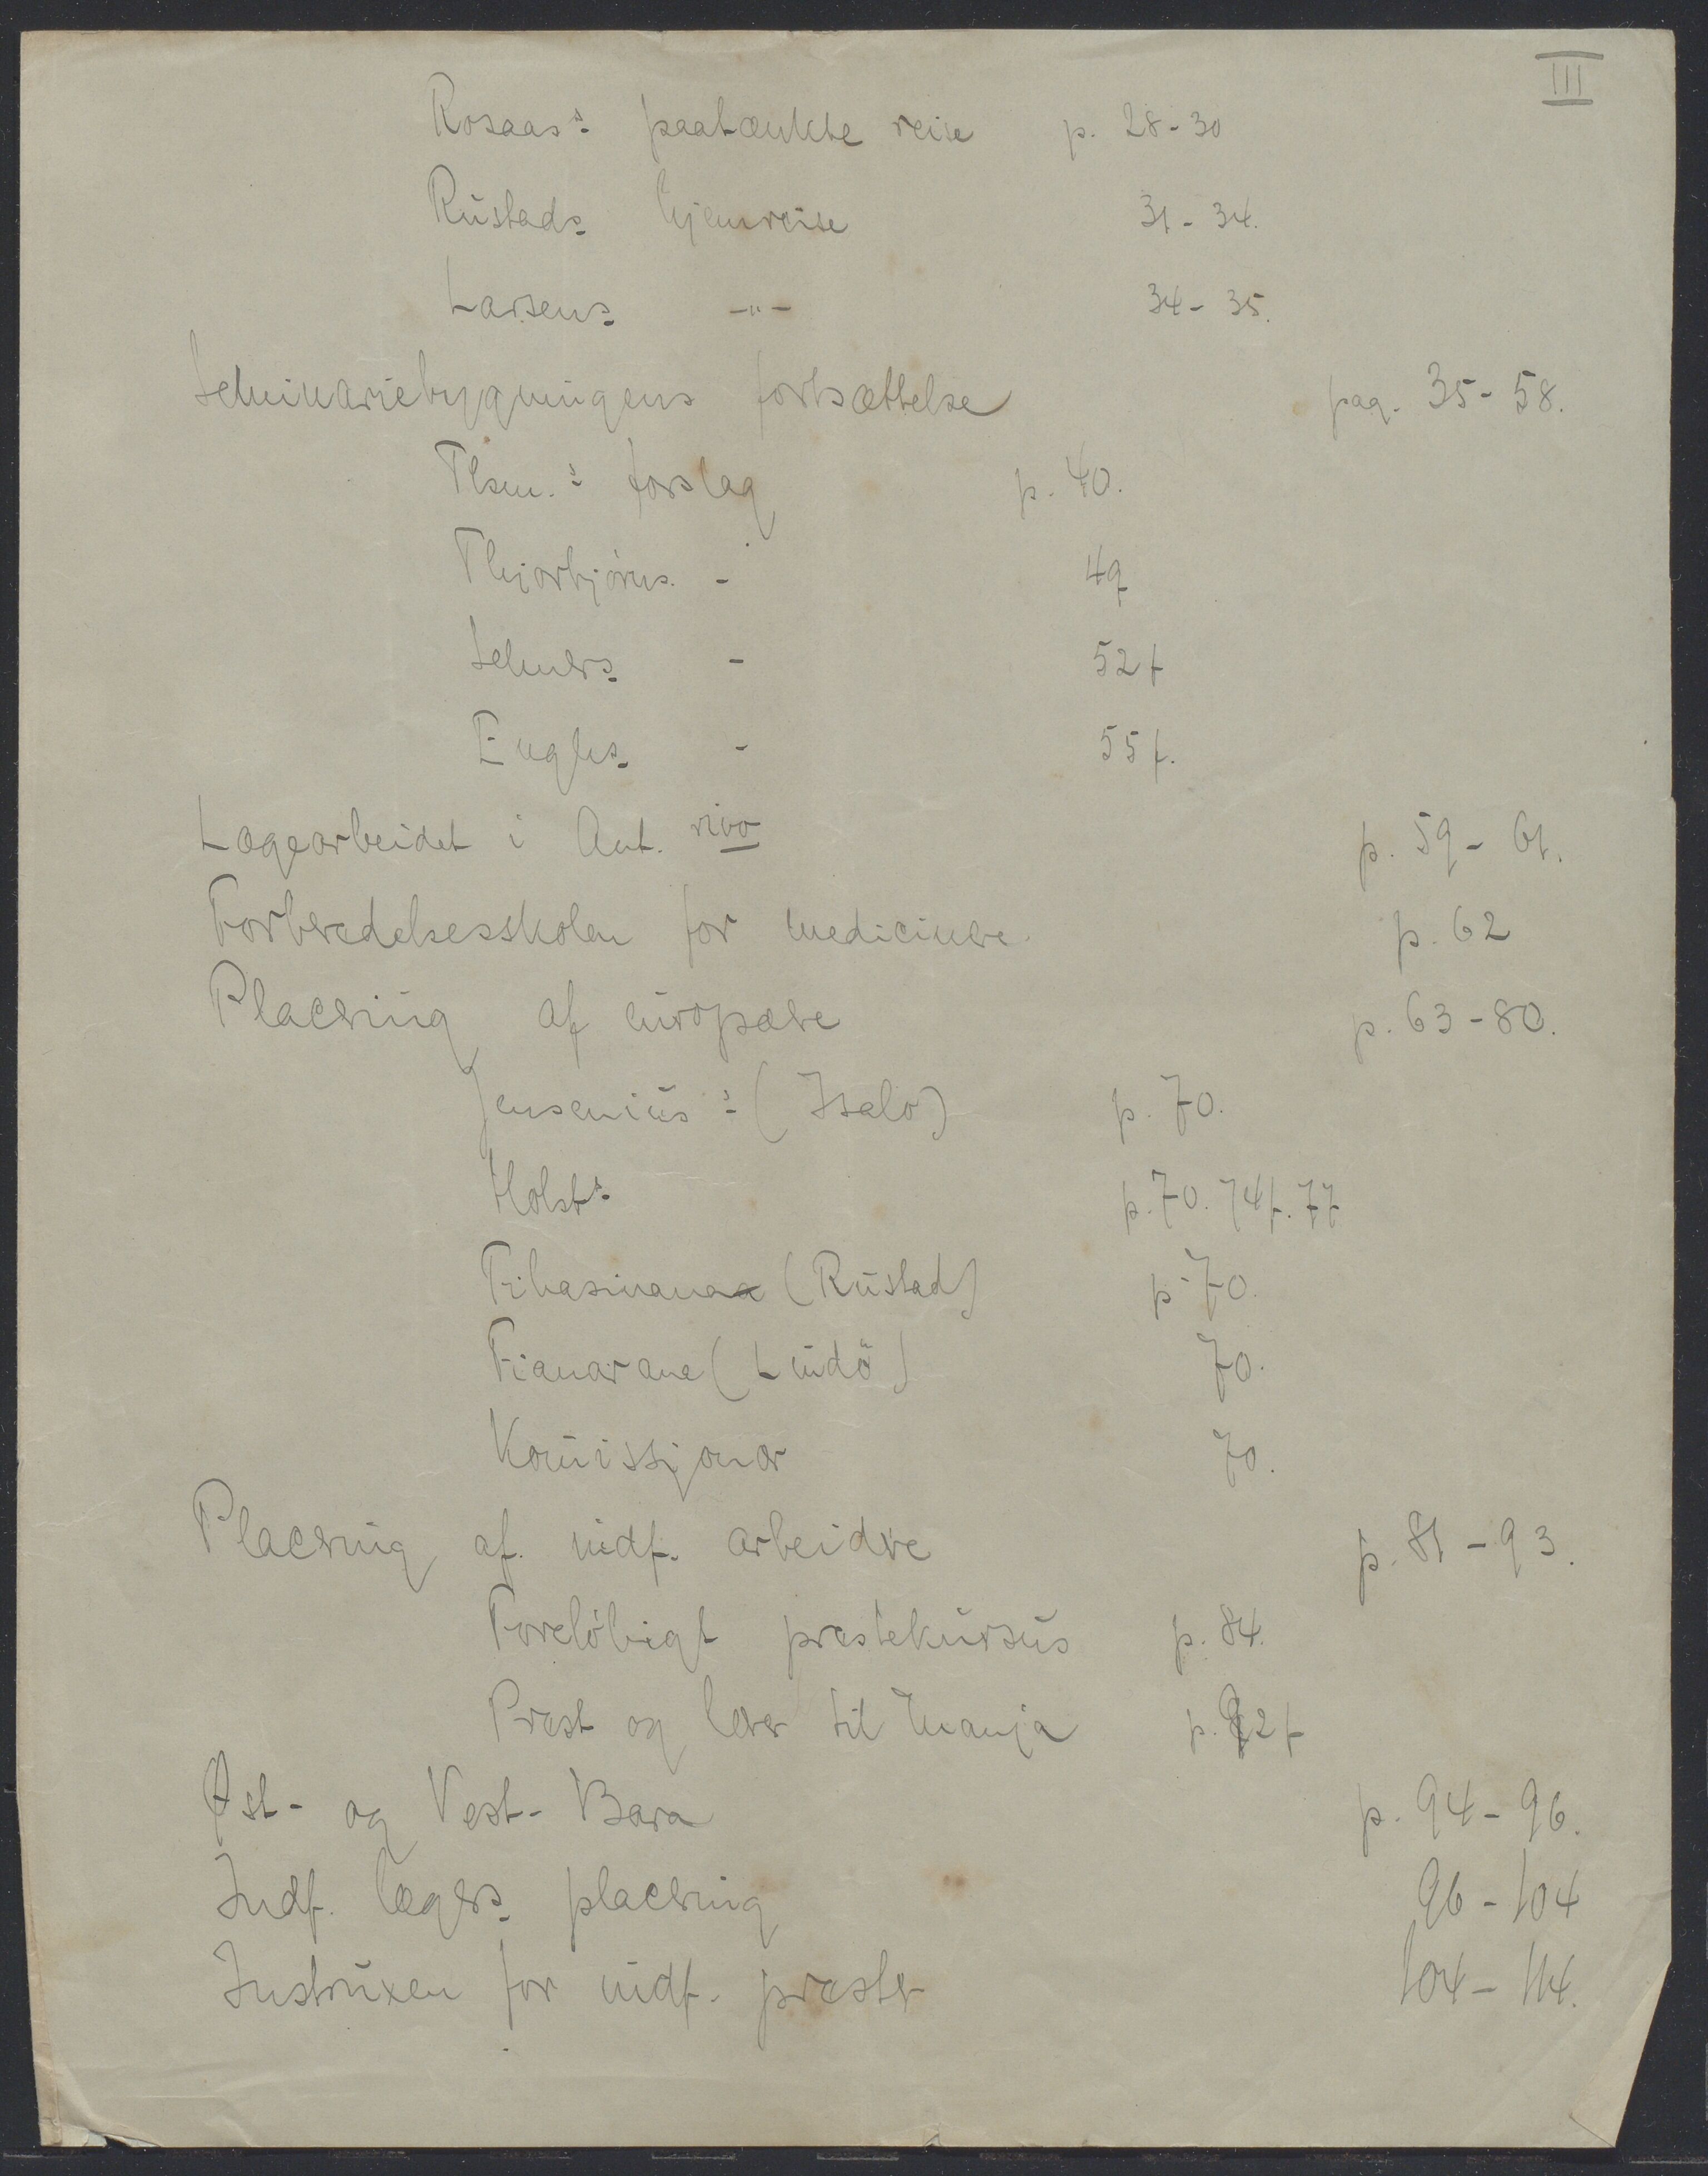 III
Rosaas's paatænkte reise p. 28-30
Rustads hjemreise 31-34.
Larsens -"- 34-35.
Seminariebygningens fortsættelse pag. 35-58.
Thsm.'s forslag p. 40.
Thjorbjörns. - 49
Selmers - 52f
Enghs - 55f.
Lægearbeidet i Ant. rivo p. 59-61.
Forberedelsesskolen for medicinere p. 62
Placering af europæere p. 63-80.
Jensenius's (Isalo) p. 70.
Holst's p. 70. 74f. 77
Fihasinana (Rustad) p 70.
Fianarana (Lindö) 70.
Komissjonær 70.
Placering af indf. arbeidere p. 81-93.
Foreløbigt prestekursus p. 84.
Prest og lærer til Manja p. 92f
Øst- og Vest-Bara p. 94-96.
Indf. lægers placering 96-104
Instruxen for indf. prester 104-114.